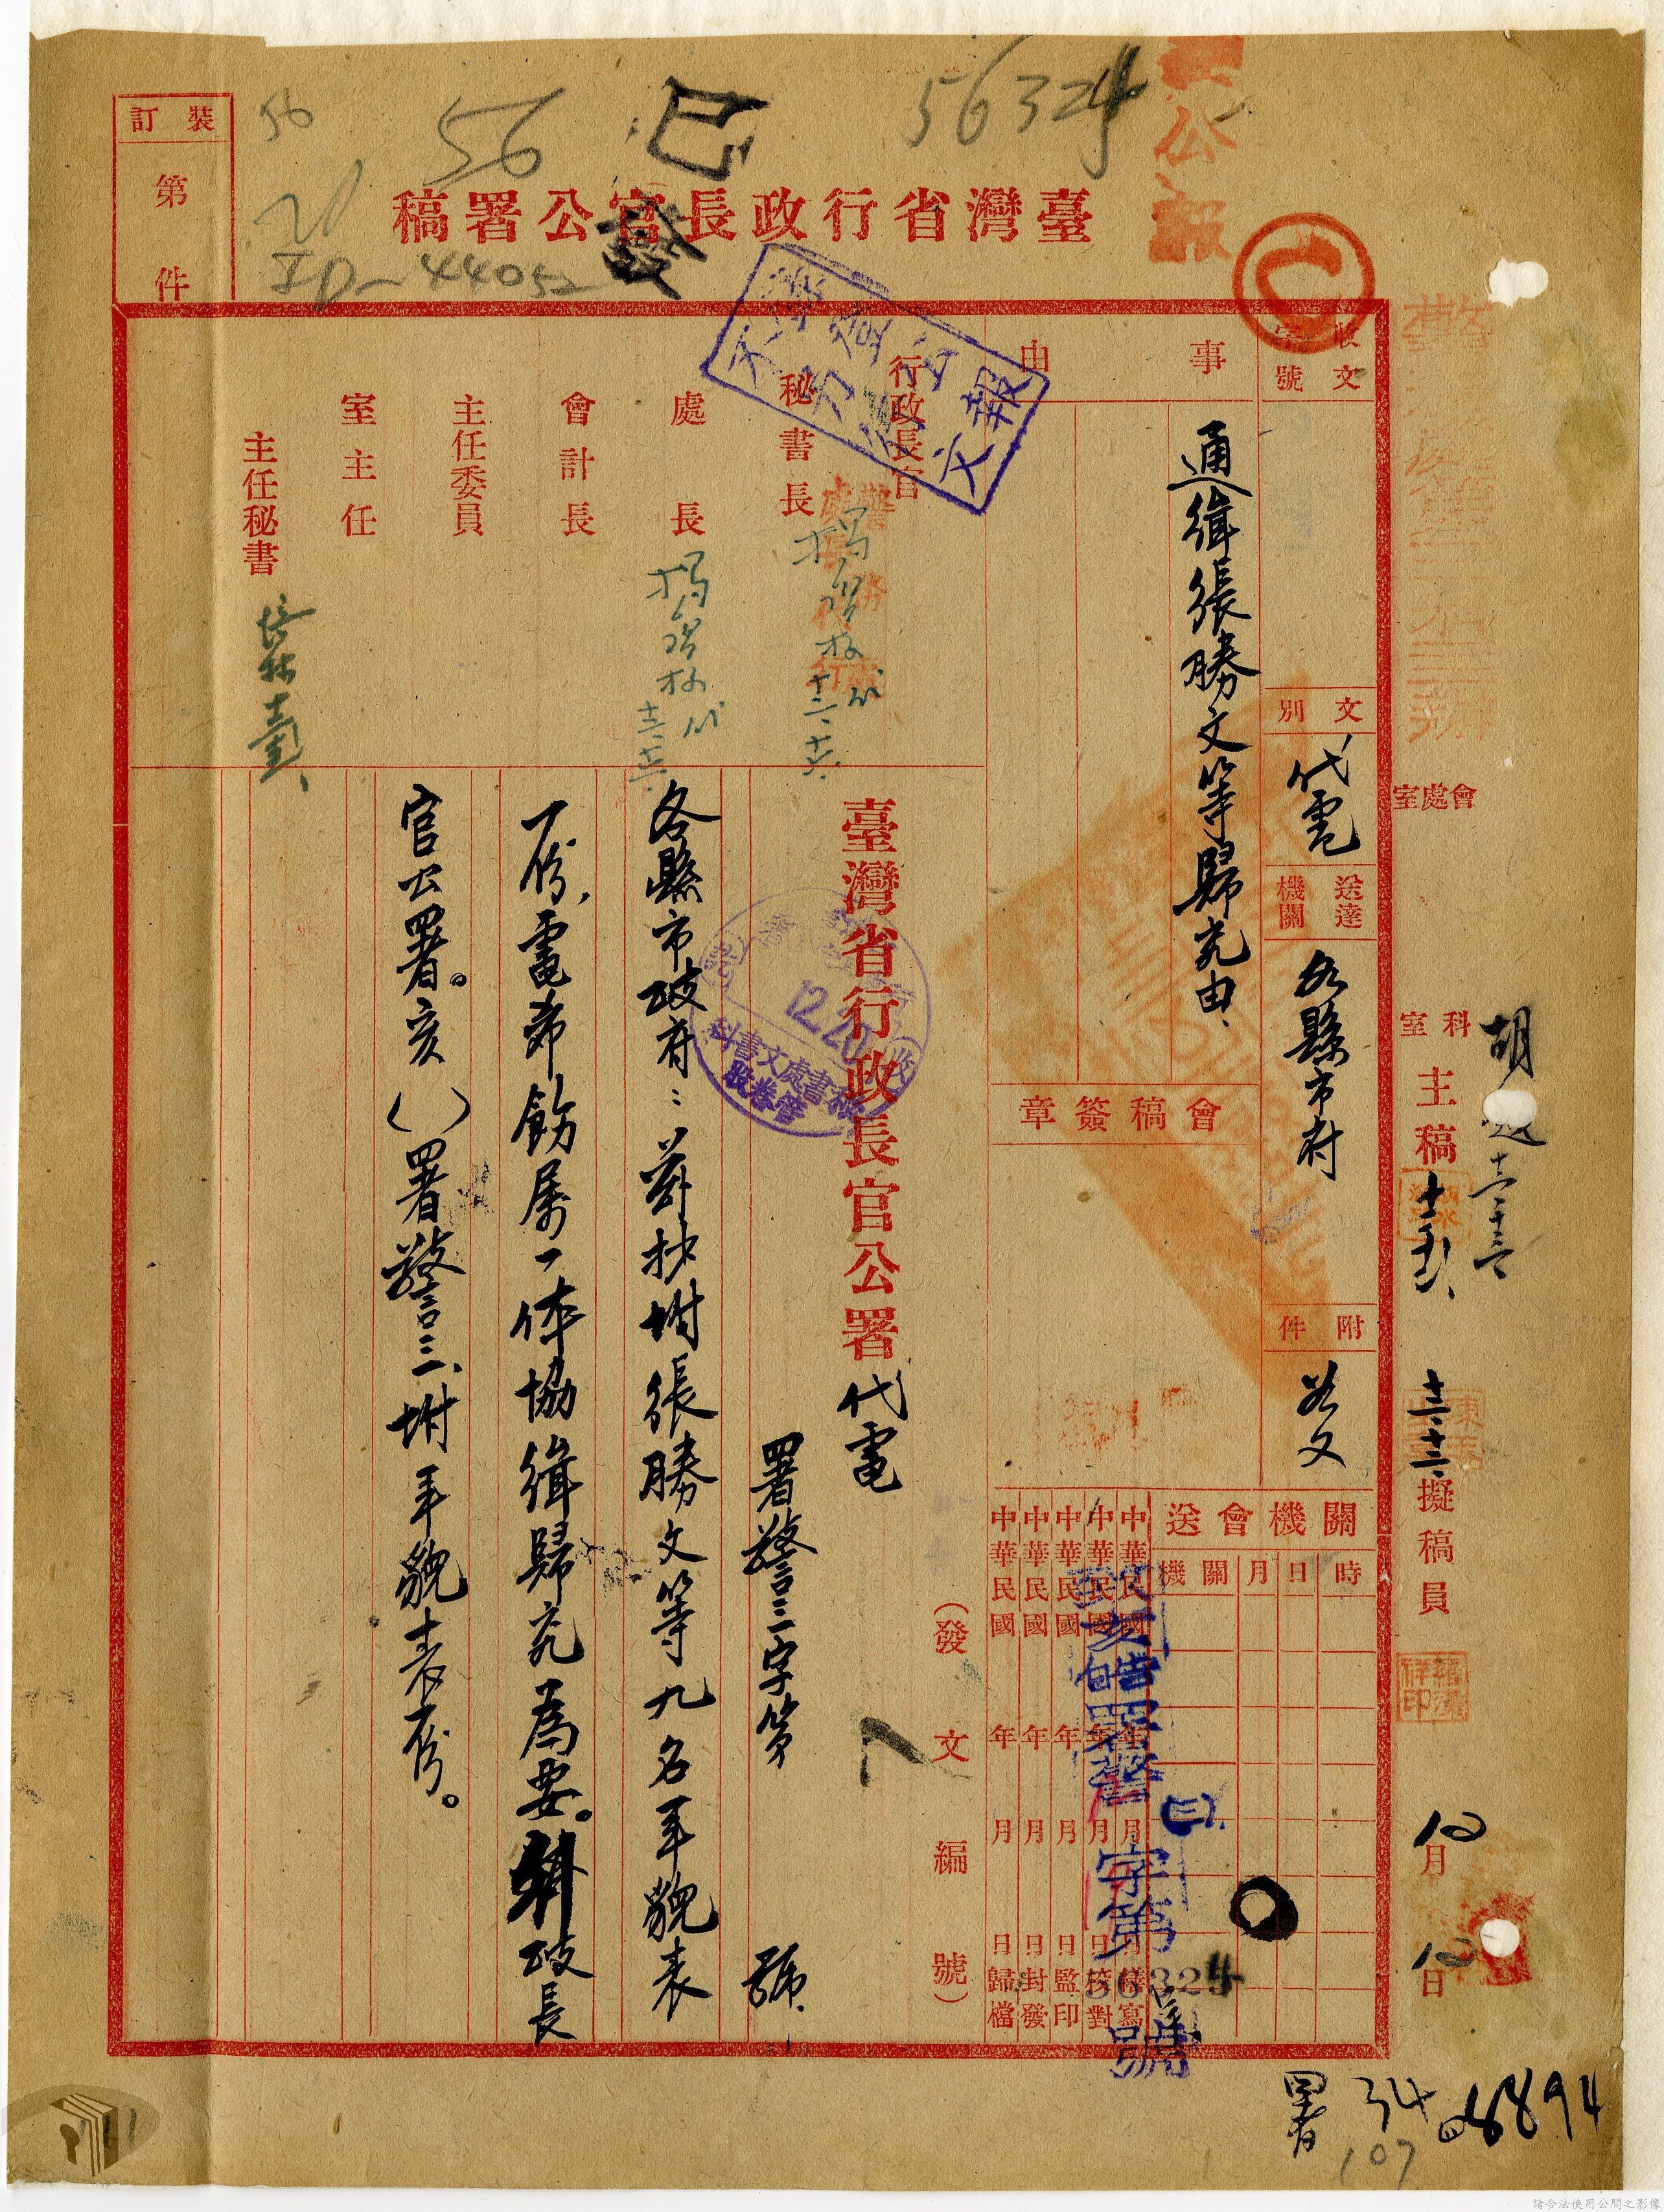 56324
56
56
ID-44052
已
公報
臺灣省行政長官公署稿
裝訂
第
件
登公報
不另行文
會處室
科室
主稿
擬稿員
收文
字號
文別
代電
送達機關
各縣市府
附件
如文
事由
通緝張勝文等歸究由
會稿簽章
關機會送
時
日
月
關
機
中華民國 年 月 日繕寫
中華民國 年 月 日校對
中華民國 年 月 日監印
中華民國 年 月 日封發
中華民國 年 月 日歸檔
致亥皓署警(三)字第56324號
(發文編號)
行政長官
秘書長
處長
會計長
主任委員
室主任
主任秘書
臺灣省行政長官公署代電
署警三字第 號
各縣市政府:茲抄附張勝文等九名年貌表
一份,電希飭屬一体協緝歸究為要。 政長
官公署。亥()署警三、附年貌表一份。
12.20
秘書處文書科
管卷股
月
日
署
34
8894
107
請合法使用公開之影像